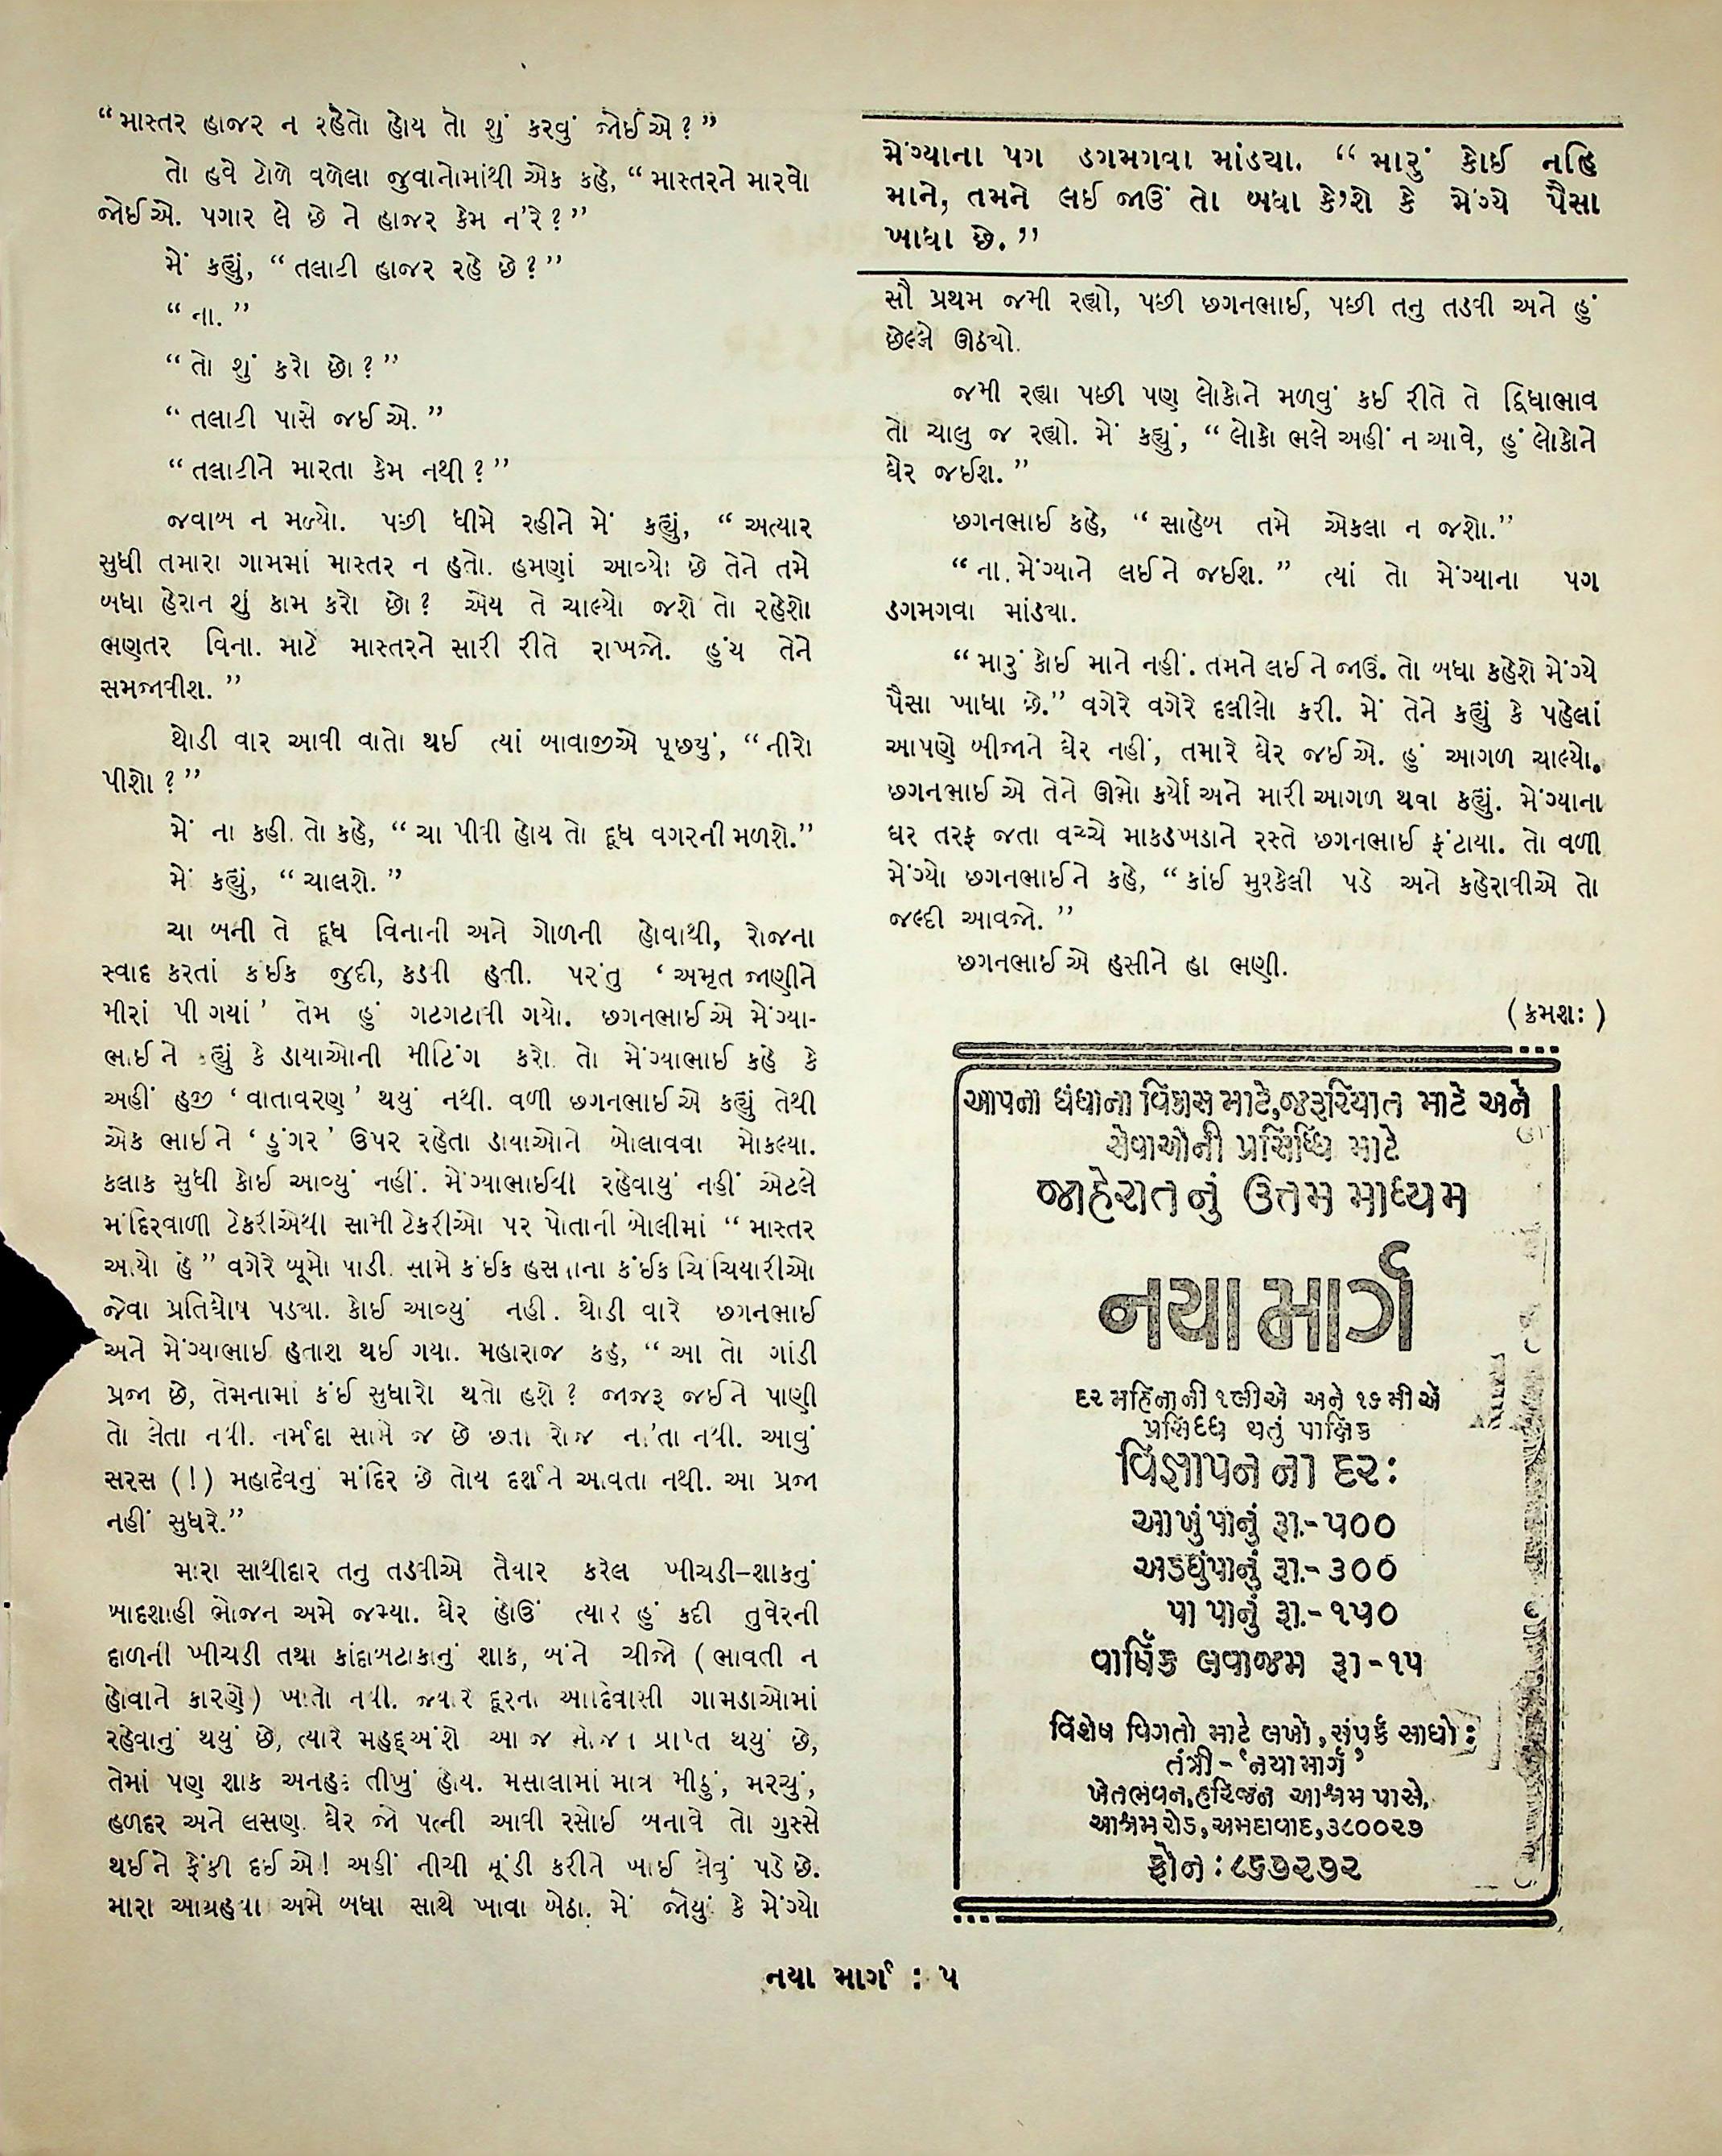 “માસ્તર હાજર ન રહેતો હોય તો શું કરવું જોઈએ?”
તો હવે ટોળે વળેલા જુવાનોમાંથી એક કહે, “માસ્તરને મારવો
જોઈએ. પગાર લે છે ને હાજર કેમ ન’રે?”
મેં કહ્યું, “તલાટી હાજર રહે છે?”
“ના.”
“તો શું કરો છો?”
“તલાટી પાસે જઈએ.”
“તલાટીને મારતા કેમ નથી?”
જવાબ ન મળ્યો. પછી ધીમે રહીને મેં કહ્યું, “અત્યાર
સુધી તમારા ગામમાં માસ્તર ન હતો. હમણાં આવ્યો છે તેને તમે
બધા હેરાન શું કામ કરો છો? એય તે ચાલ્યો જશે તો રહેશો
ભણતર વિના. માટે માસ્તરને સારી રીતે રાખજો. હુંય તેને
સમજાવીશ.”
થોડી વાર આવી વાતો થઈ ત્યાં બાવાજીએ પૂછયું, “નીરો
પીશો?”
મેં ના કહી. તો કહે, “ચા પીવી હોય તો દૂધ વગરની મળશે.”
મેં કહ્યું, “ચાલશે.”
ચા બની તે દૂધ વિનાની અને ગોળની હોવાથી, રોજના
સ્વાદ કરતાં કંઈક જુદી, કડવી હતી. પરંતુ ‘અમૃત જાણીને
મીરાં પી ગયાં’ તેમ હું ગટગટાવી ગયો. છગનભાઈએ મેંગ્યા-
ભાઈને કહ્યું કે ડાયાઓની મીટિંગ કરો. તો મેંગ્યાભાઈ કહે કે
અહીં હજી ‘વાતાવરણ’ થયું નથી. વળી છગનભાઈએ કહ્યું તેથી
એક ભાઈને ‘ડુંગર’ ઉપર રહેતા ડાયાઓને બોલાવવા મોકલ્યા.
કલાક સુધી કોઈ આવ્યું નહીં. મેંગ્યાભાઈથી રહેવાયું નહીં એટલે
મંદિરવાળી ટેકરીએથી સામી ટેકરીઓ પર પોતાની બોલીમાં “માસ્તર
આયો હે” વગેરે બૂમો પાડી. સામે કંઈક હસવાના કંઈક ચિચિયારીઓ
જેવા પ્રતિઘોષ પડ્યા. કોઈ આવ્યું નહી. થોડી વારે છગનભાઈ
અને મેંગ્યાભાઈ હતાશ થઈ ગયા. મહારાજ કહે, “આ તો ગાંડી
પ્રજા છે, તેમનામાં કંઈ સુધારો થતો હશે? જાજરૂ જઈને પાણી
તો લેતા નથી. નર્મદા સામે જ છે છતા રોજ ના’તા નથી. આવું
સરસ (!) મહાદેવનું મંદિર છે તોય દર્શને આવતા નથી. આ પ્રજા
નહીં સુધરે.”
મારા સાથીદાર તનુ તડવીએ તૈયાર કરેલ ખીચડી–શાકનું
બાદશાહી ભોજન અમે જમ્યા. ઘેર હોઉં ત્યારે હું કદી તુવેરની
દાળની ખીચડી તથા કાંદાબટાકાનું શાક, બંને ચીજો (ભાવતી ન
હોવાને કારણે) ખાતો નથી. જ્યારે દૂરના આદિવાસી ગામડાઓમાં
રહેવાનું થયું છે, ત્યારે મહદ્અંશે આ જ ભોજન પ્રાપ્ત થયું છે,
તેમાં પણ શાક અનહદ તીખું હોય. મસાલામાં માત્ર મીઠું, મરચું,
હળદર અને લસણ. ઘેર જો પત્ની આવી રસોઈ બનાવે તો ગુસ્સે
થઈને ફેંકી દઈએ! અહીં નીચી મૂંડી કરીને ખાઈ લેવું પડે છે.
મારા આગ્રહથી અમે બધા સાથે ખાવા બેઠા. મેં જોયું કે મેંગ્યો
મેંગ્યાના પગ ડગમગવા માંડયા. “મારું કોઈ નહિ
માને, તમને લઈ જાઉં તો બધા કે’શે કે મેંગ્યે પૈસા
ખાધા છે.”
સૌ પ્રથમ જમી રહ્યો, પછી છગનભાઈ, પછી તનુ તડવી અને હું
છેલ્લે ઊઠયો.
જમી રહ્યા પછી પણ લોકોને મળવું કઈ રીતે તે દ્વિધાભાવ
તો ચાલુ જ રહ્યો. મેં કહ્યું, “લોકો ભલે અહીં ન આવે, હું લોકોને
ઘેર જઈશ.”
છગનભાઈ કહે, “સાહેબ તમે એકલા ન જશો.”
“ના. મેંગ્યાને લઈને જઈશ.” ત્યાં તો મેંગ્યાના પગ
ડગમગવા માંડયા.
“મારું કોઈ માને નહીં. તમને લઈને જાઉં. તો બધા કહેશે મેંગ્યે
પૈસા ખાધા છે.” વગેરે વગેરે દલીલો કરી. મેં તેને કહ્યું કે પહેલાં
આપણે બીજાને ઘેર નહીં, તમારે ઘેર જઈએ. હું આગળ ચાલ્યો.
છગનભાઈએ તેને ઊભો કર્યો અને મારી આગળ થવા કહ્યું. મેંગ્યાના
ઘર તરફ જતા વચ્ચે માકડખડાને રસ્તે છગનભાઈ ફંટાયા. તો વળી
મેંગ્યો છગનભાઈને કહે, “કાંઈ મુશ્કેલી પડે અને કહેરાવીએ તો
જલ્દી આવજો.”
છગનભાઈએ હસીને હા ભણી.
(ક્રમશ:)
આપના ધંધાના વિકાસ માટે,જરૂરિયાત માટે અને
સેવાઓની પ્રસિધ્ધિ માટે
જાહેરાતનું ઉત્તમ માધ્યમ
નયા માર્ગ
દર મહિનાની ૧લીએ અને ૧૬મીએ
પ્રસિધ્ધ થતું પાક્ષિક
વિજ્ઞાપનના દર:
આખું પાનું રૂા.-૫૦૦
અડધુંપાનું રૂા.-૩૦૦
પા પાનું રૂા.-૧૫૦
વાર્ષિક લવાજમ રૂા-૧૫
વિશેષ વિગતો માટે લખો,સંપર્ક સાધો:
તંત્રી-‘નયા માર્ગ’
ખેતભવન,હરિજન આશ્રમ પાસે,
આશ્રમ રોડ,અમદાવાદ,૩૮૦૦૨૭
ફોન:૮૬૭૨૭૨
નયા માર્ગ : ૫